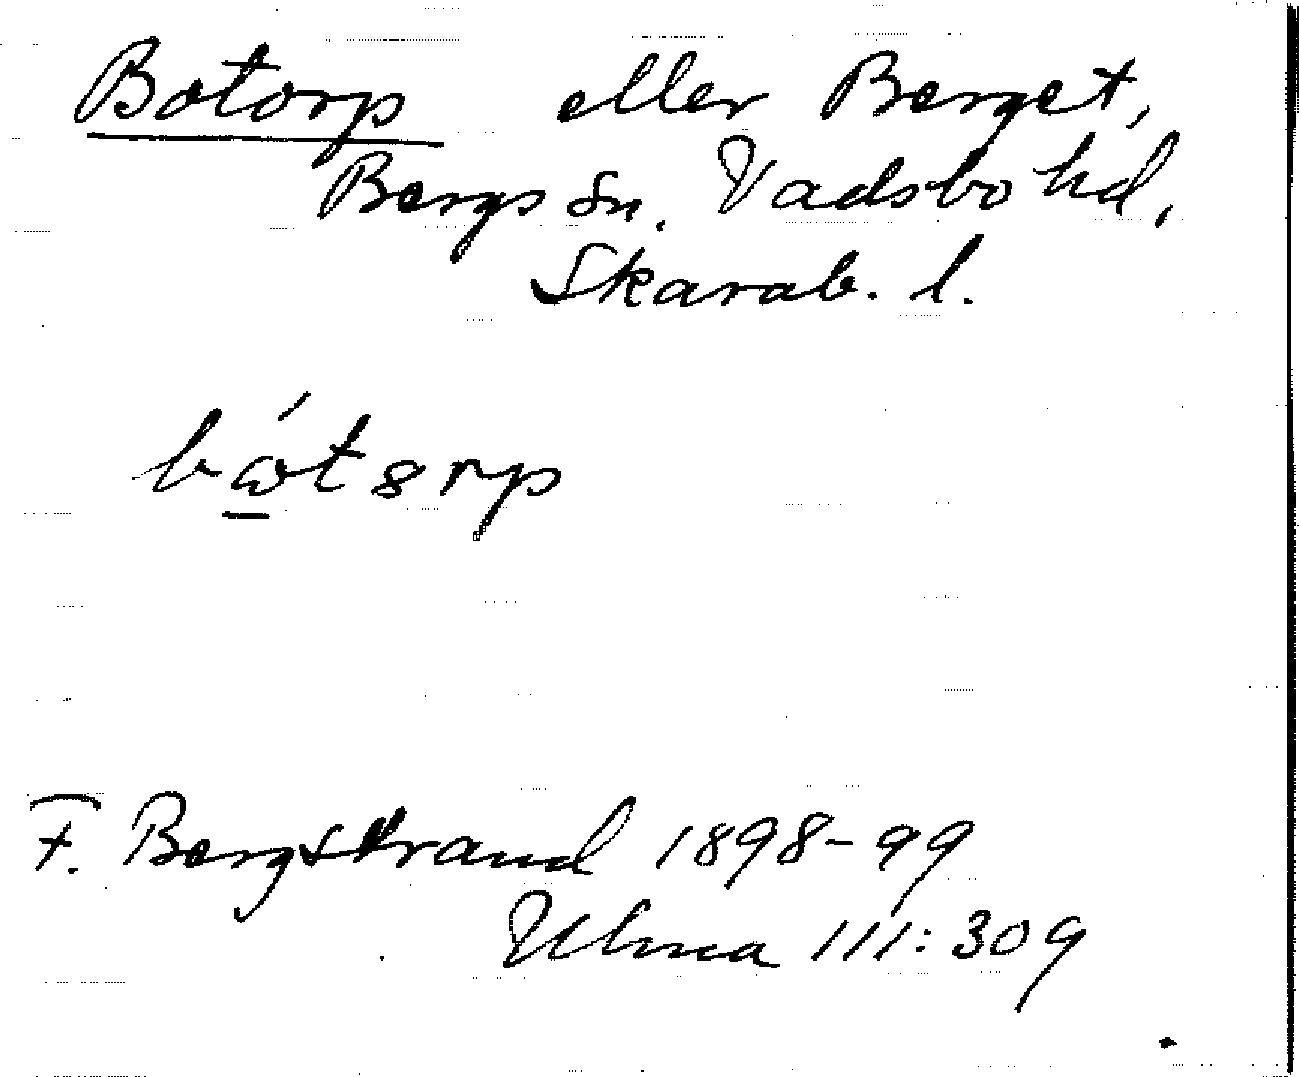 Botorp eller Berget,
Bergs sn. Vadsbo hd,
Skarab. l.
bώ̱t8rp
F. Bergstrand 1898-99
Ulma 111:309